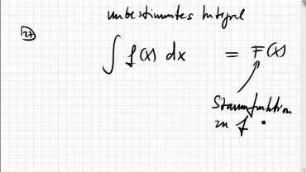 unbestimmtes Integral
∫ f(x) dx = F(x)
Stammfunktion
zu f